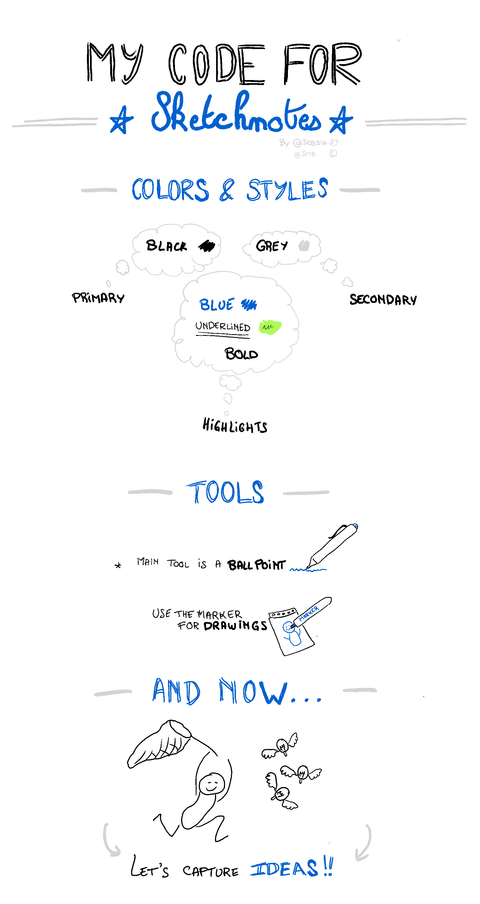 MY CODE FOR
Sketchnotes
By
COLORS & STYLES
BLACK
GREY
PRIMARY
SECONDARY
BLUE
UNDERLINED
BOLD
HIGHLIGHTS
TOOLS
* MAIN TOOL IS A BALLPOINT
USE THE MARKER
FOR DRAWINGS
MARKER
AND NOW...
LET'S CAPTURE IDEAS!!